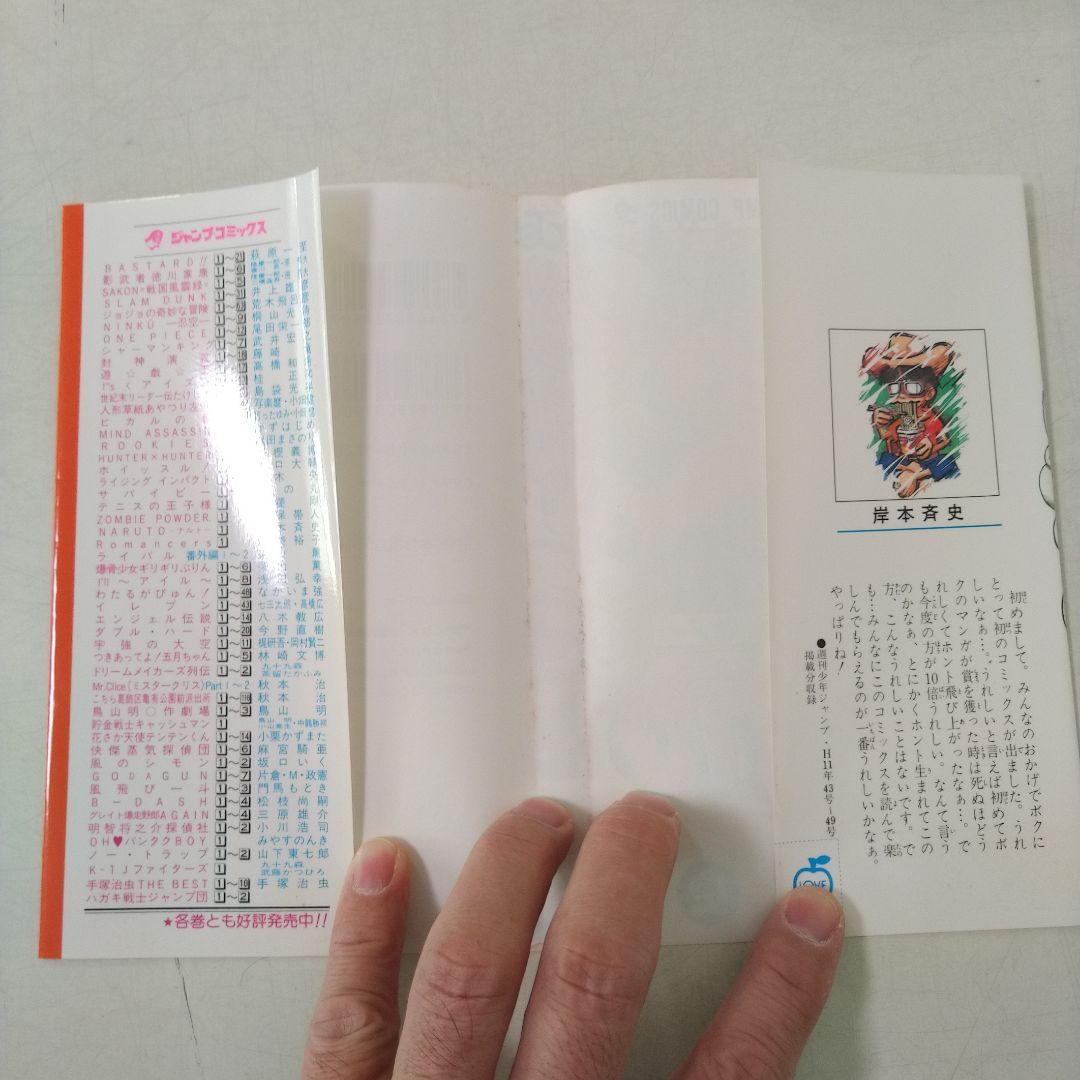 ジャンプ・コミックス
BASTARD!! 1～20 萩原一至
影武者徳川家康
SAKON・戦国風雲録・
SLAM DUNK 井上雄
ジョジョの奇妙な冒険 荒木飛呂
NINKŪ—忍空— 桐山光
ONE PIECE 尾田栄一
シャーマンキング 武井宏
封神演 藤崎
遊☆戯☆ 高橋和
I"s〈アイズ 桂正
世紀末リーダー伝たけ 島袋光
人形草紙あやつり左
ヒカルの
MIND ASSASSI
ROOKIES
HUNTER×HUNTER
ホイッスル!
ライジング インパクト
サバイビー
テニスの王子様
ZOMBIE POWDER.
NARUTO—ナルト— 1
Romancers 1
ライバル 番外編1～2
爆骨少女ギリギリぷりん 1～6
I'll～アイル～ 1～8
わたるがぴゅん! 1～48 なかいま強
イレブン 1～43 七三太朗・高橋広
エンジェル伝説 1～14 八木教広
ダブル・ハード 1～20 今野直樹
宇強の大空 1～11 梶研吾・岡村賢二
つきあってよ!五月ちゃん 1～5 林崎文博
ドリームメイカーズ列伝 1～2
Mr.Clice(ミスタークリス)Part 1～2 秋本治
こちら葛飾区亀有公園前派出所 秋本治
鳥山明○作劇場 1～3 鳥山明
貯金戦士キャッシュマン 1
花さか天使テンテンくん 1～14 小栗かずまた
快傑蒸気探偵団 1～6 麻宮騎亜
風のシモン 1～2 坂口いく
GODAGUN 1～7 片倉・M・政憲
風飛び一斗 1～3 門馬もとき
B-DASH 1～4 松枝尚嗣
グレイト爆走野郎AGAIN 1～4 三原雄介
明智将之介探偵社 1～2 小川浩司
OH♥バンタクBOY 1 みやすのんき
ノー・トラップ 1～2 山下東七郎
K-1Jファイターズ 1 武藤かつひろ
手塚治虫THE BEST 1～10 手塚治虫
ハガキ戦士ジャンプ団 1～2
★各巻とも好評発売中!!
岸本斉史
初めまして。みんなのおかげでボクに
とって初のコミックスが出ました。うれ
しいなぁ…。“うれしい”と言えば初めてボ
クのマンガが賞を獲った時は死ぬほどう
れしくてホント飛び上がったなぁ…。で
も今度の方が10倍うれしい。なんて言う
のかなぁ、とにかくホント生まれてこの
方、こんなうれしいことはないです。で
も…みんなにこのコミックスを読んで楽
しんでもらえるのが一番うれしいかなぁ。
やっぱりね!
●週刊少年ジャンプ・H11年43号～49号
掲載分収録
LOVE